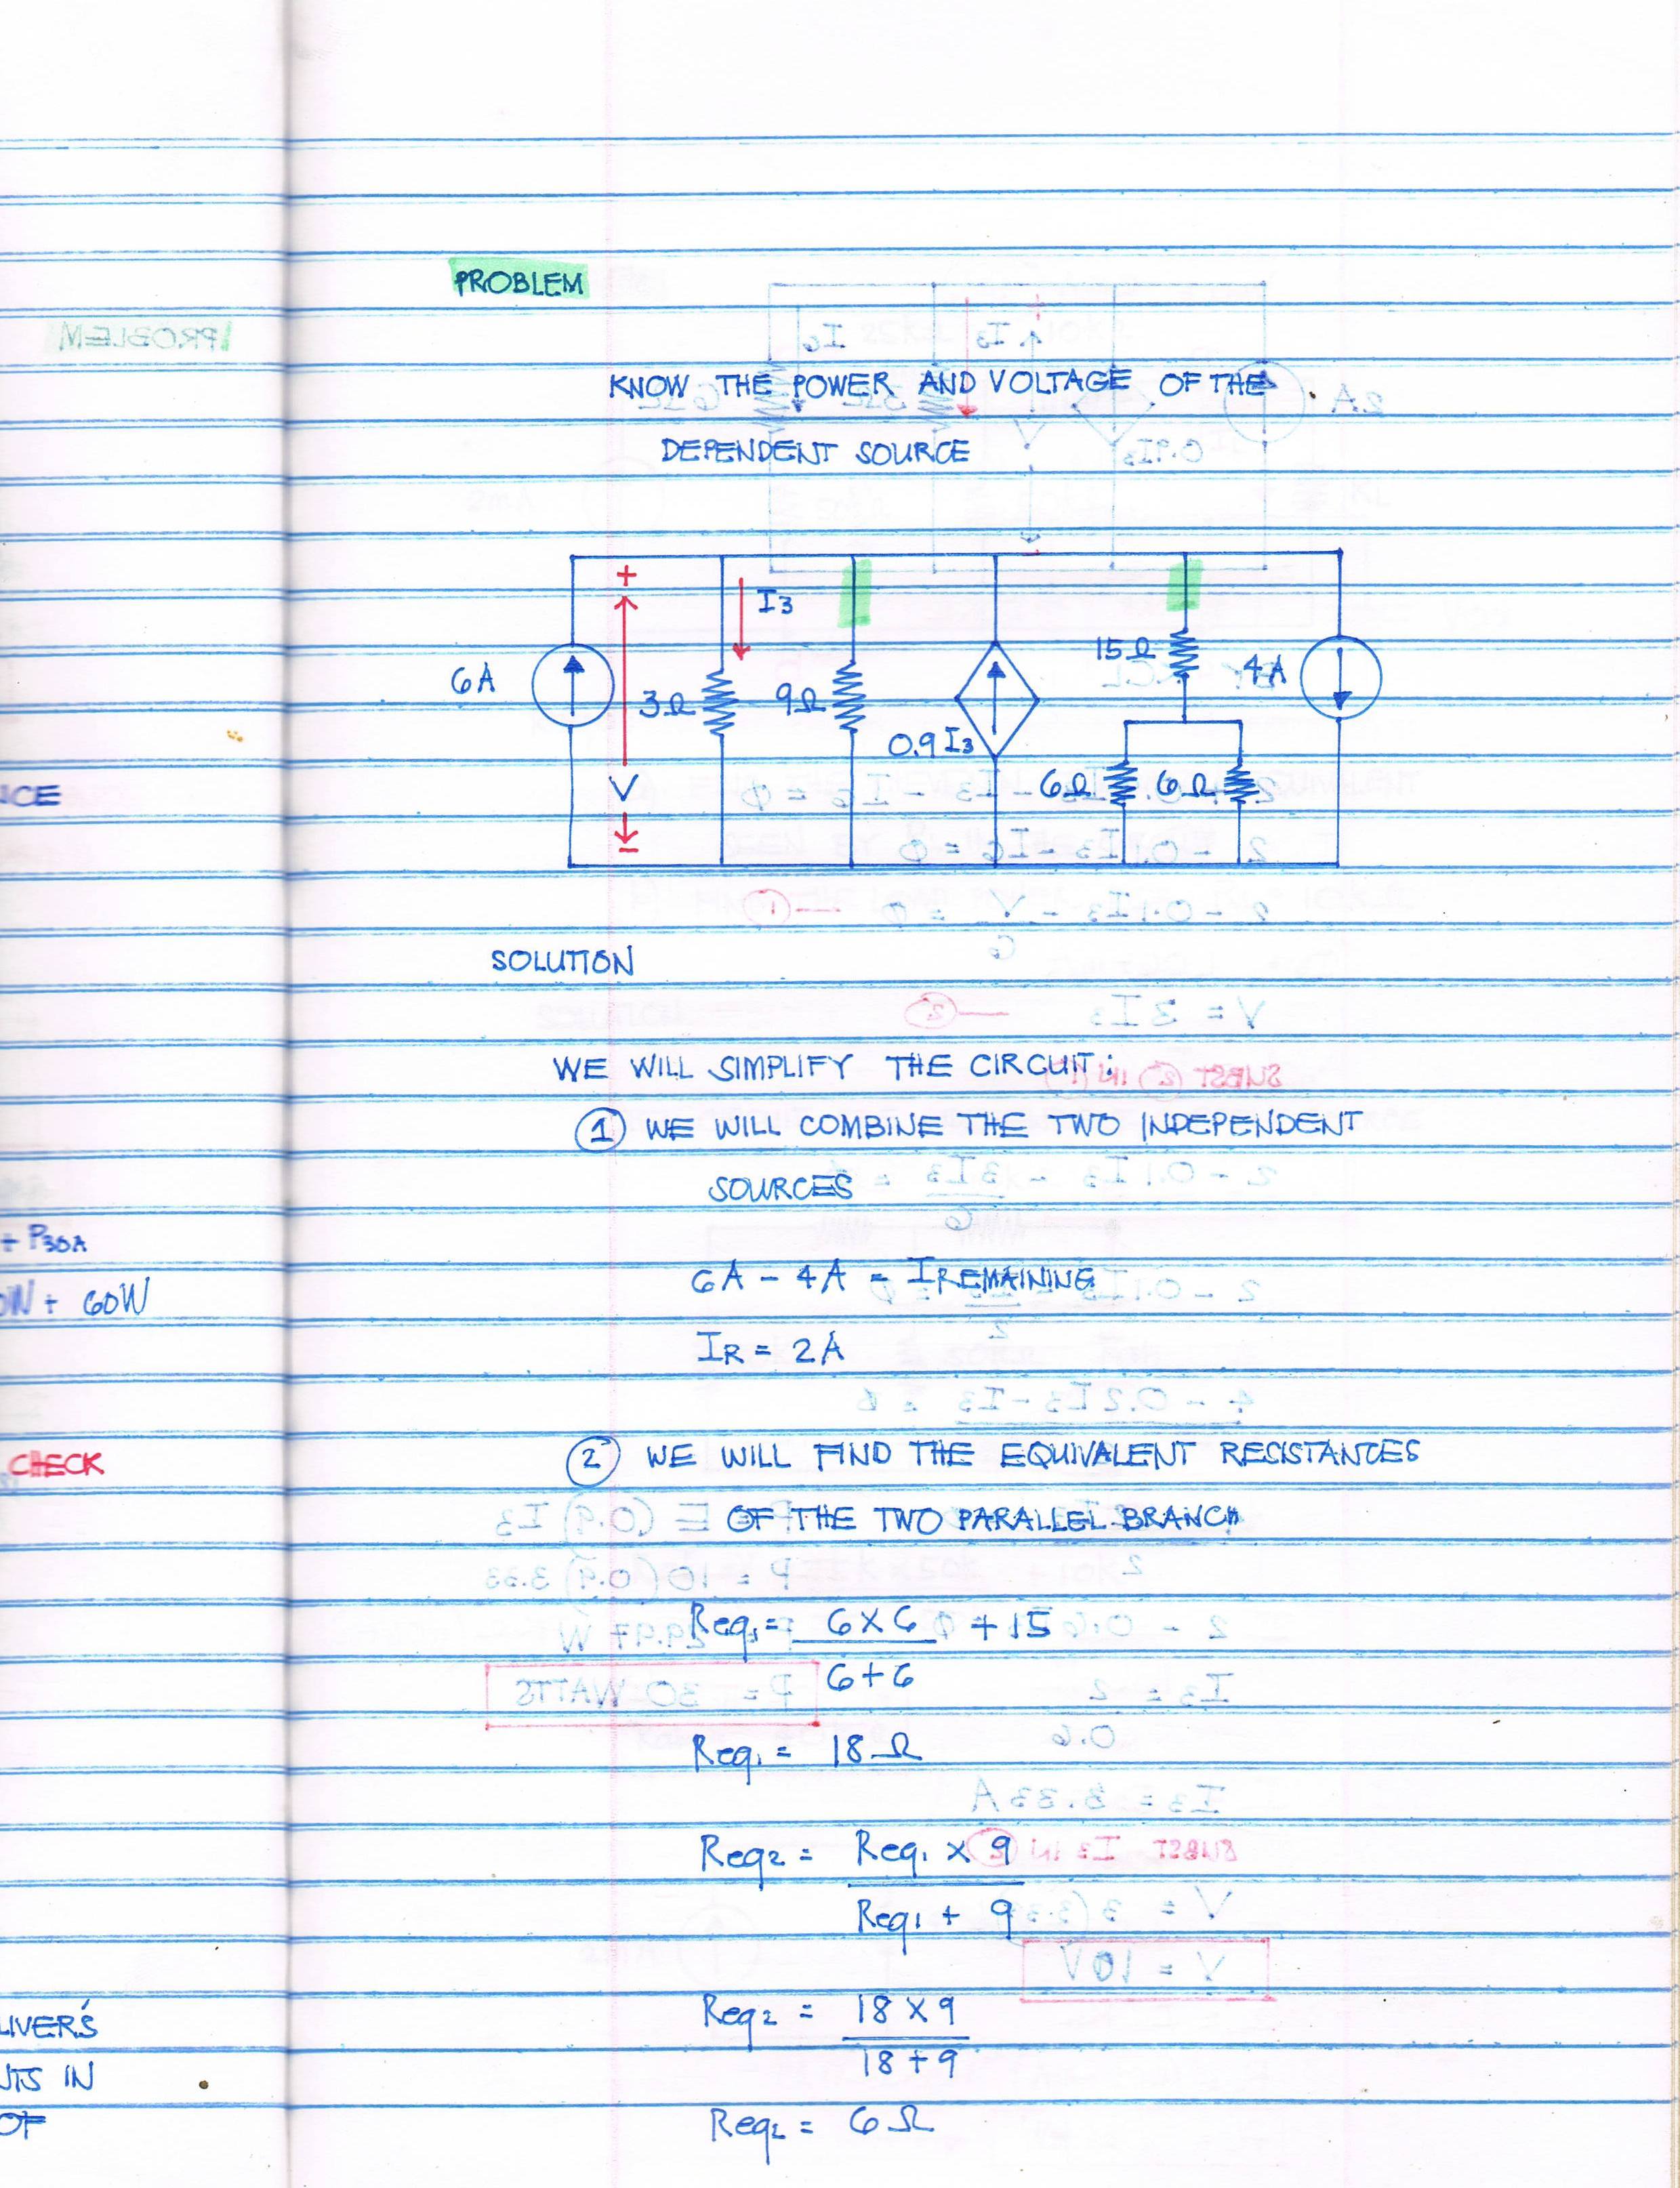 PROBLEM
KNOW THE POWER AND VOLTAGE OF THE
DEPENDENT SOURCE
6A
+
V
-
I3
3Ω
9Ω
0.9 I3
15Ω
6Ω
6Ω
4A
SOLUTION
WE WILL SIMPLIFY THE CIRCUIT:
1 WE WILL COMBINE THE TWO INDEPENDENT
SOURCES
6A - 4A = IREMAINING
IR = 2A
2 WE WILL FIND THE EQUIVALENT RECISTANCES
OF THE TWO PARALLEL BRANCH
Req1 = 6 X 6 + 15
6 + 6
Req1 = 18Ω
Req2 = Req1 X 9
Req1 + 9
Req2 = 18 X 9
18 + 9
Req2 = 6Ω
+ P30A
W + 60W
CHECK
LIVER'S
NTS IN
OF